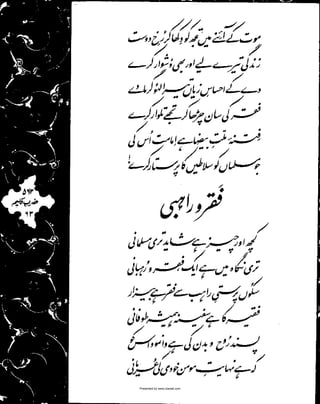 موت کے آئنے میں تجھ کو دکھا کر رخِ دوست
زندگی تیرے لیے اور بھی دشوار کرے
دے کے احساسِ زیاں تیرا لہو گرما دے
فقر کی سان چڑھا کر تجھے تلوار کرے
فتنۂ ملتِ بیضا ہے امامت اُس کی
جو مسلماں کو سلاطیں کا پرستار کرے!
فقر و راہبی
کچھ اور چیز ہے شاید تری مسلمانی
تری نگاہ میں ہے ایک فقر و رہبانی
سکوں پرستیِ راہب سے فقر ہے بیزار
فقیر کا ہے سفینہ ہمیشہ طوفانی
پسند روح و بدن کی ہے وا نمود اس کو
کہ ہے نہایتِ مومن خودی کی عریانی
ضربِ کلیم
Presented by www.ziaraat.com